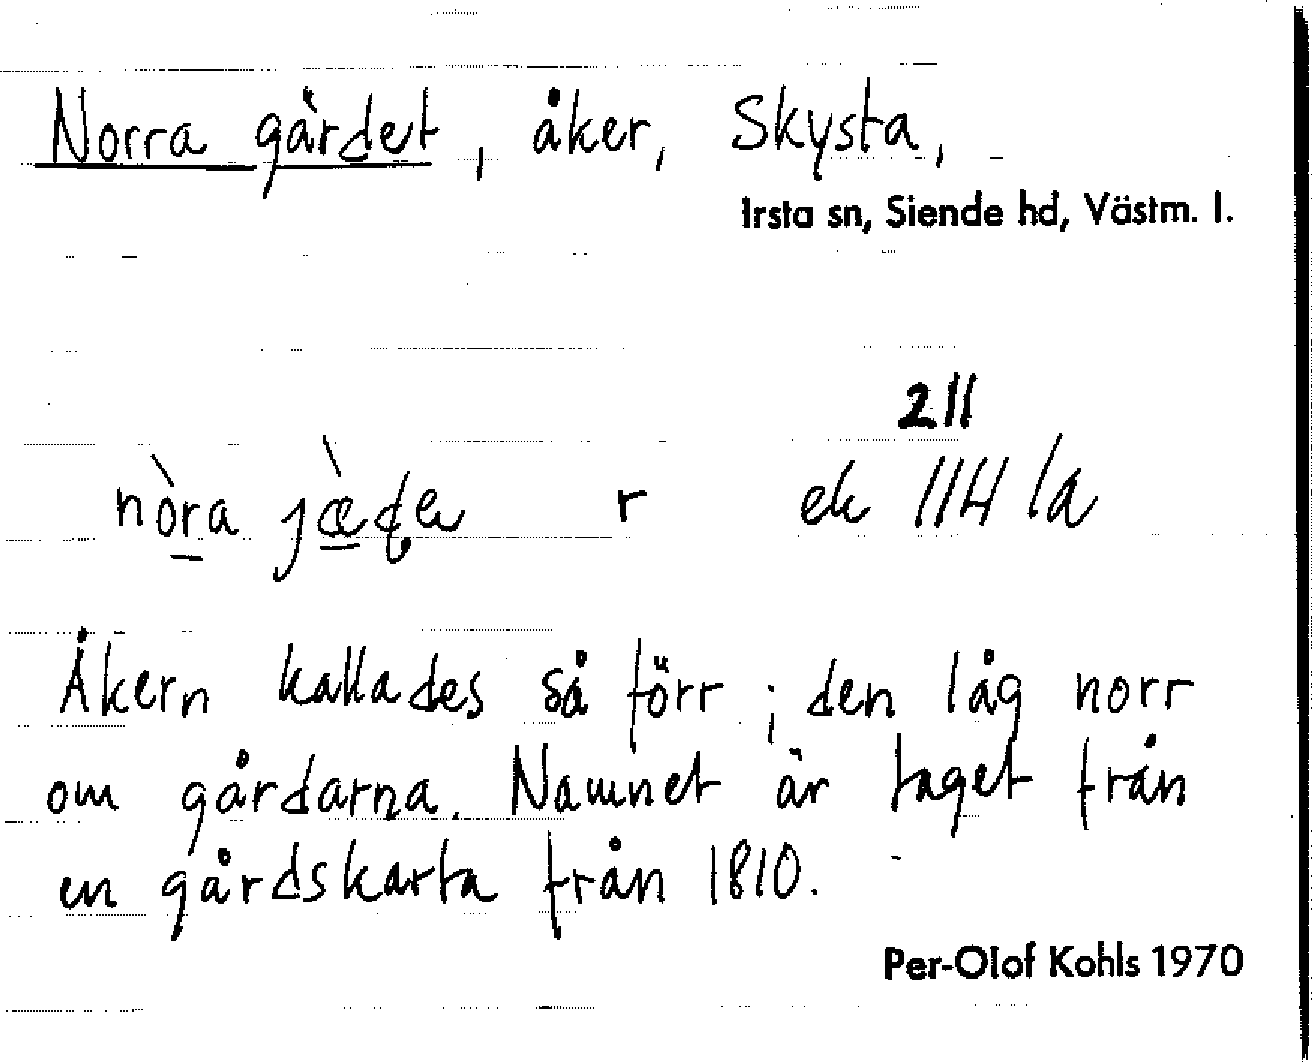 Norra gärdet, åker, Skysta,
Irsta sn, Siende hd, Västm. l.
211
nòra jæ̀de r ek 114 la
Åkern kallades så förr; den låg norr
om gårdarna. Namnet är taget från
en gårdskarta från 1810.
Per-Olof Kohls 1970